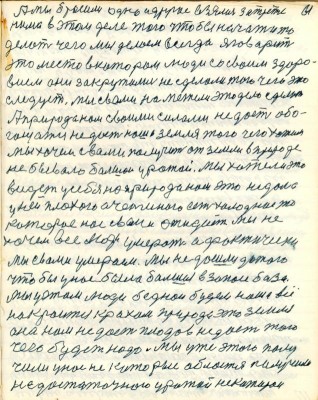 А мы бросили одно и другое взялись за третье
нами в этом деле того чтобы начать то
делать чего мы делаем всегда я говорит
это место в котором люди со своим здоро-
вием они закрутили не сделали того чего это
следует, мы с вами на
А природа нам своими силами не даёт обо-
гощати недает наша земля того чего хотим
мы хочем с вами получит от земли в природе
не бывало большой урожай. Мы хотели это
видет у себя но природа нам это не дала
у ней плохого отогнано есть холодное то
которое нас с вами ожидает. Мы не
хочем все люди умерать а фактически
мы с вами умераем. Мы не дошли до того
чтобы у нас была большая в запасе база.
Мы утом люди бедном будем наше всё
накроится крахом природа это земля
она нам не дает плодов не дает того
чего будет надо. Мы уже этого полу
чили у нас не которые области получили
недостаточного урожай некоторои